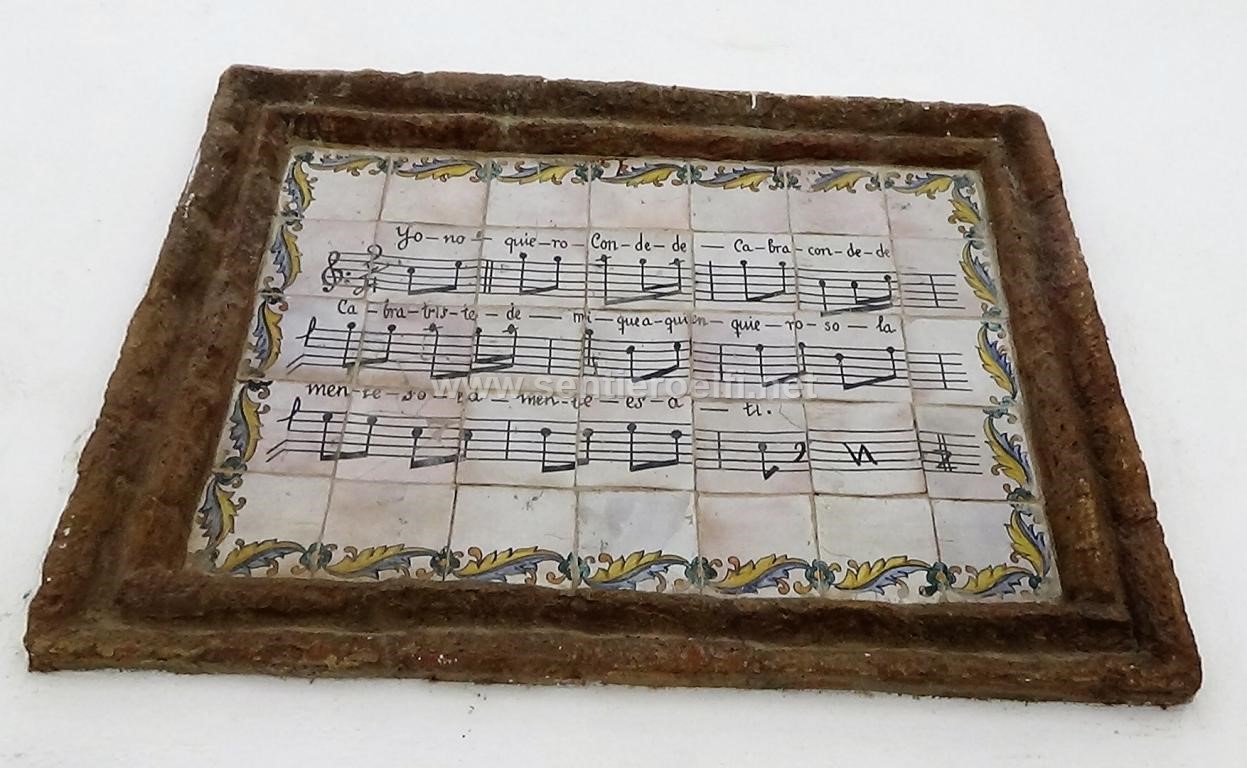 Yo-no- quie-ro- Con-de-de - Ca-bra con-de-de
Ca-bra-tris-te-de- mi-quea-quien-quie-ro-so-la
men-te-so-la-men-te-es-a-ti.
www.sentieroelfi.net